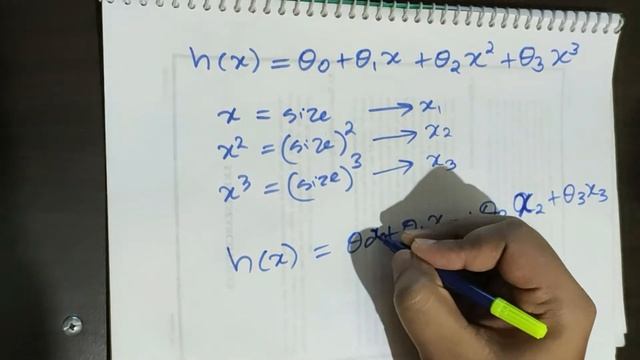 h(x) = θ0 + θ1x + θ2x² + θ3x³
x = size → x1
x² = (size)² → x2
x³ = (size)³ → x3
h(x) = θ x2 + θ3x3